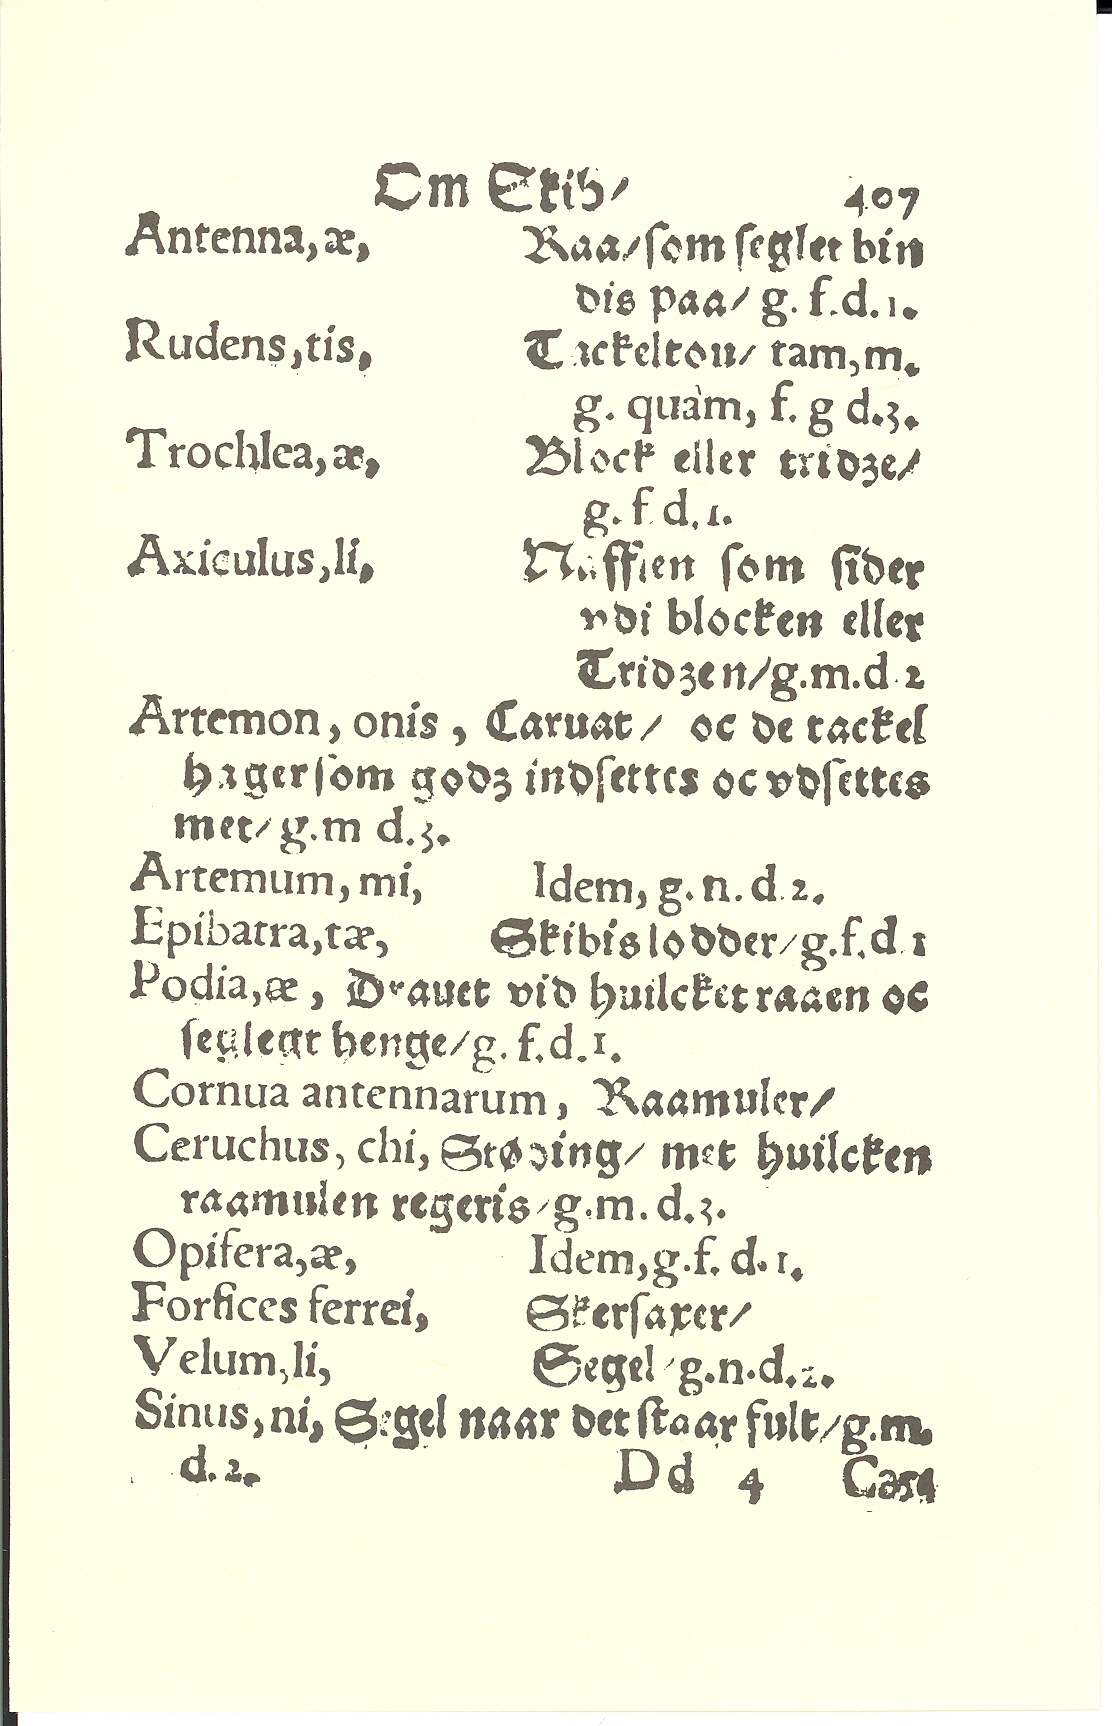 Om Skib/ 407
Antenna, æ, Raa/ som seglet bin
dis paa/ g. f. d. 1.
Rudens, tis, Tackeltou/ tam, m.
g. quàm, f. g d. 3.
Trochlea, æ, Block eller tridze/
g. f d. 1.
Axiculus, li, Naffien som sider
vdi blocken eller
Tridzen/ g. m. d. 2
Artemon, onis, Caruat/ oc de tackel
hager som godz indsettes oc vdsettes
met/ g. m d. 3.
Artemum, mi, Idem, g. n. d. 2.
Epibatra, tæ, Skibislodder/ g. f. d. 1
Podia, æ, Drauet vid huilcket raaen oc
seglegt henge/ g. f. d. 1.
Cornua antennarum, Raamuler/
Ceruchus, chi, Støding/ met huilcken
raamulen regeris/ g. m. d. 3.
Opifera, æ, Idem, g. f. d. 1.
Forfices ferrei, Skersaxer/
Velum, li, Segel/ g. n. d. 2.
Sinus, ni, Segel naar det staar fult/ g. m.
d. 2. Dd 4